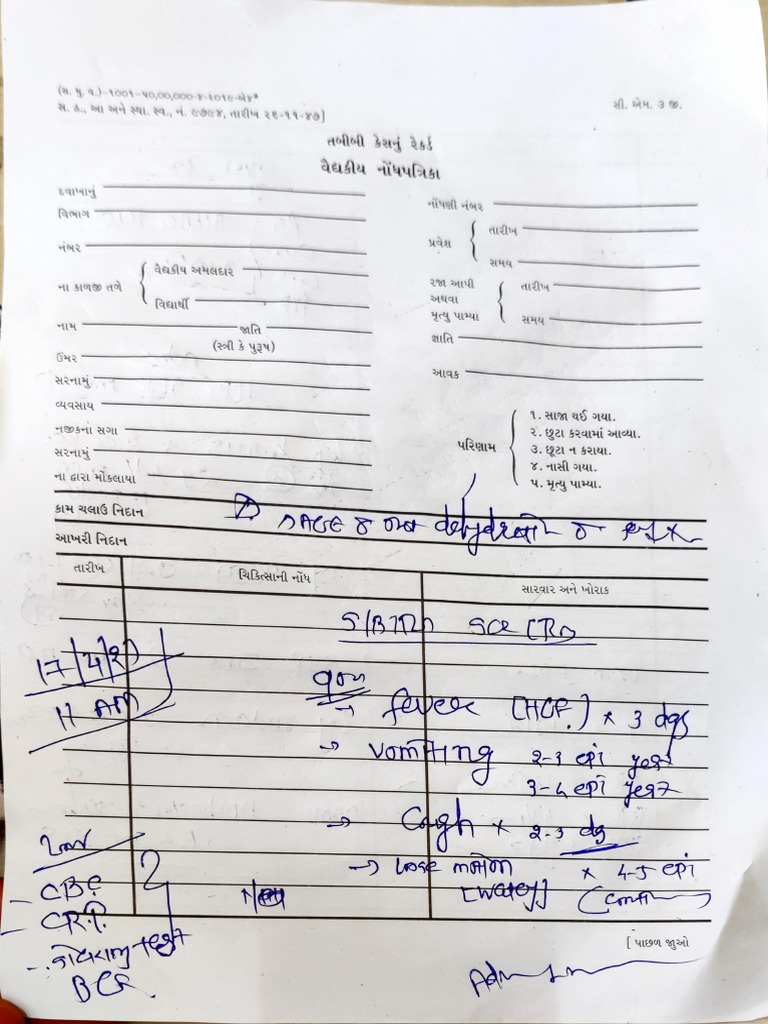 (સ. મુ. વ.)-૧૦૦૧-૫૦,૦૦,૦૦૦-૪-૨૦૧૯-એ૪*
સ. ઠ., આ અને સ્થા. સ્વ., નં. ૯૭૯૪, તારીખ ૨૬-૧૧-૪૭]
સી. એમ. ૩ જી.
તબીબી કેસનું રેકર્ડ
વૈદ્યકીય નોંધપત્રિકા
દવાખાનું
વિભાગ
નંબર
ના કાળજી તળે { વૈદ્યકીય અમલદાર
વિદ્યાર્થી
નામ જાતિ
(સ્ત્રી કે પુરૂષ)
ઉંમર
સરનામું
વ્યવસાય
નજીકના સગા
સરનામું
ના દ્વારા મોકલાયા
નોંધણી નંબર
પ્રવેશ { તારીખ
સમય
રજા આપી
અથવા
મૃત્યુ પામ્યા { તારીખ
સમય
જ્ઞાતિ
આવક
પરિણામ
૧. સાજા થઈ ગયા.
૨. છુટા કરવામાં આવ્યા.
૩. છૂટા ન કરાયા.
૪. નાસી ગયા.
૫. મૃત્યુ પામ્યા.
કામ ચલાઉ નિદાન
dehydration
આખરી નિદાન
તારીખ ચિકિત્સાની નોંધ સારવાર અને ખોરાક
11 AM
→ fever × 3 dys
→ vomiting 2-3 epi yest
3-4 epi yest
→ Cough × 2-3 dy
→ loose motion × 4-5 epi
[watery]
- CBC
- CRP
[પાછળ જુઓ